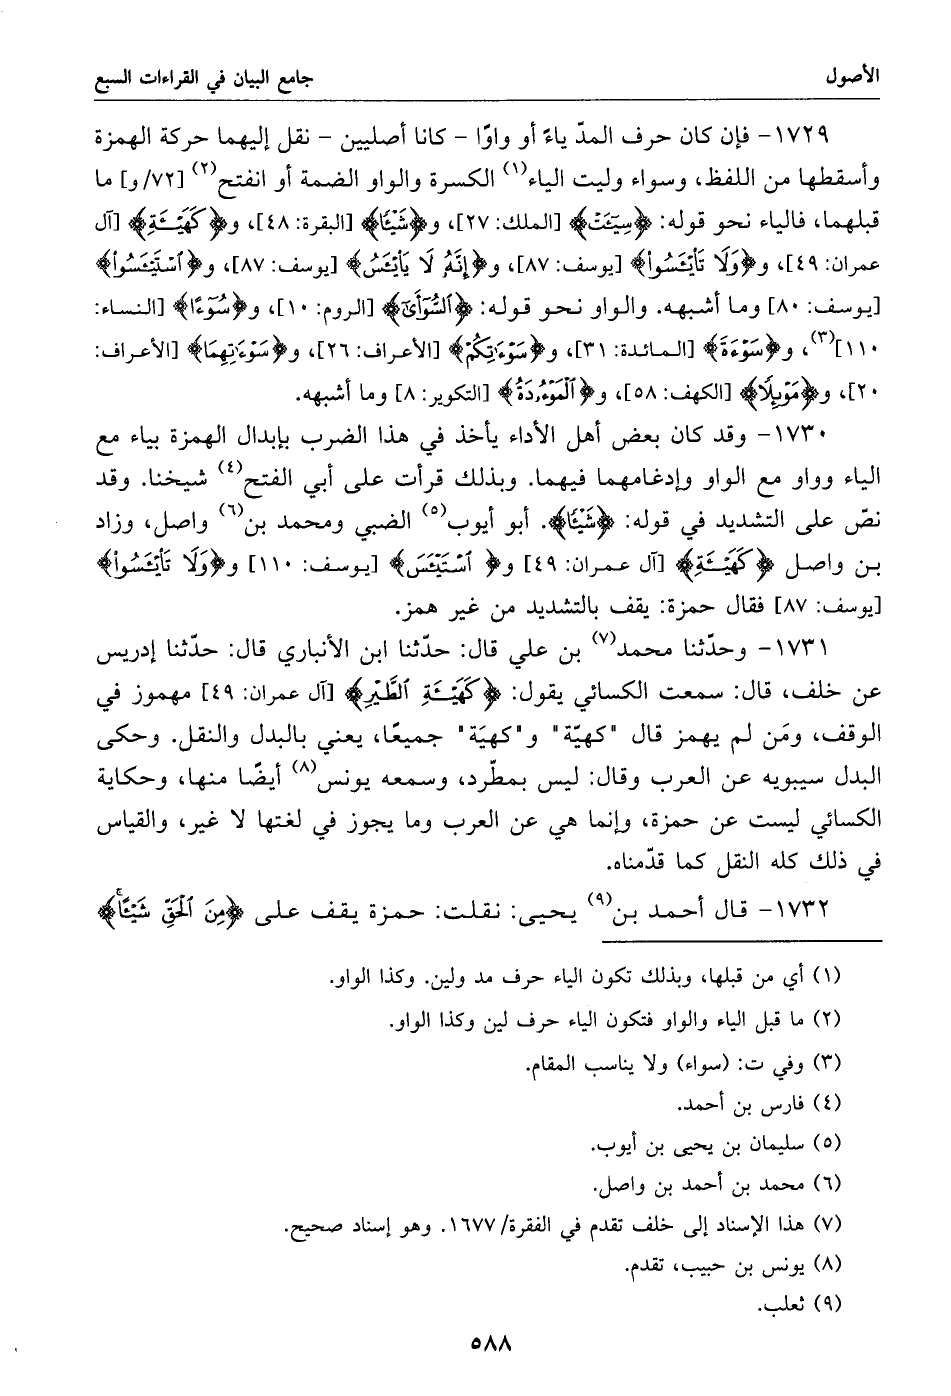 الأصول
جامع البيان في القراءات السبع
١٧٢٩- فإن كان حرف المدّ ياءً أو واوًا - كانا أصليين - نقل إليهما حركة الهمزة
وأسقطها من اللفظ، وسواء وليت الياء(١) الكسرة والواو الضمة أو انفتح(٢) [٧٢/و] ما
قبلهما، فالياء نحو قوله: ﴿سِيٓـَٔتۡ﴾ [الملك: ٢٧]، و﴿شَيۡـًٔا﴾ [البقرة: ٤٨]، و﴿كَهَيۡـَٔةِ﴾ [آل
عمران: ٤٩]، و﴿وَلَا تَاْيۡـَٔسُواْ﴾ [يوسف: ٨٧]، و﴿إِنَّهُۥ لَا يَاْيۡـَٔسُ﴾ [يوسف: ٨٧]، و﴿ٱسۡتَيۡـَٔسُواْ﴾
[يوسف: ٨٠] وما أشبهه. والواو نحو قوله: ﴿ٱلسُّوٓأَىٰٓ﴾ [الروم: ١٠]، و﴿سُوٓءًا﴾ [النساء:
١١٠](٣)، و﴿سَوۡءَةَ﴾ [المائدة: ٣١]، و﴿سَوۡءَٰتِكُمۡ﴾ [الأعراف: ٢٦]، و﴿سَوۡءَٰتِهِمَا﴾ [الأعراف:
٢٠]، و﴿مَوۡئِلٗا﴾ [الكهف: ٥٨]، و﴿ٱلۡمَوۡءُۥدَةُ﴾ [التكوير: ٨] وما أشبهه.
١٧٣٠- وقد كان بعض أهل الأداء يأخذ في هذا الضرب بإبدال الهمزة بياء مع
الياء وواو مع الواو وإدغامهما فيهما. وبذلك قرأت على أبي الفتح(٤) شيخنا. وقد
نصّ على التشديد في قوله: ﴿شَيۡـًٔا﴾. أبو أيوب(٥) الضبي ومحمد بن(٦) واصل، وزاد
بن واصل ﴿كَهَيۡـَٔةِ﴾ [آل عمران: ٤٩] و﴿ٱسۡتَيۡـَٔسَ﴾ [يوسف: ١١٠] و﴿وَلَا تَاْيۡـَٔسُواْ﴾
[يوسف: ٨٧] فقال حمزة: يقف بالتشديد من غير همز.
١٧٣١- وحدّثنا محمد(٧) بن علي قال: حدّثنا ابن الأنباري قال: حدّثنا إدريس
عن خلف، قال: سمعت الكسائي يقول: ﴿كَهَيۡـَٔةِ ٱلطَّيۡرِ﴾ [آل عمران: ٤٩] مهموز في
الوقف، ومَن لم يهمز قال "كهيّة" و"كهيَة" جميعًا، يعني بالبدل والنقل. وحكى
البدل سيبويه عن العرب وقال: ليس بمطّرد، وسمعه يونس(٨) أيضًا منها، وحكاية
الكسائي ليست عن حمزة، وإنما هي عن العرب وما يجوز في لغتها لا غير، والقياس
في ذلك كله النقل كما قدّمناه.
١٧٣٢- قال أحمد بن(٩) يحيى: نقلت: حمزة يقف على ﴿مِنَ ٱلۡحَقِّ شَيۡـًٔاۚ﴾
(١) أي من قبلها، وبذلك تكون الياء حرف مد ولين. وكذا الواو.
(٢) ما قبل الياء والواو فتكون الياء حرف لين وكذا الواو.
(٣) وفي ت: (سواء) ولا يناسب المقام.
(٤) فارس بن أحمد.
(٥) سليمان بن يحيى بن أيوب.
(٦) محمد بن أحمد بن واصل.
(٧) هذا الإسناد إلى خلف تقدم في الفقرة/١٦٧٧. وهو إسناد صحيح.
(٨) يونس بن حبيب، تقدم.
(٩) ثعلب.
٥٨٨